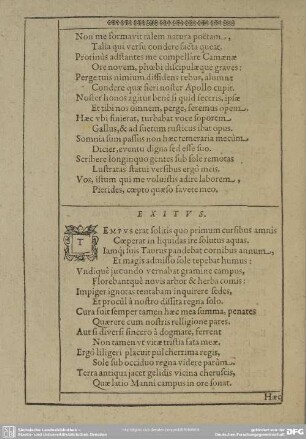 Non me formavit talem natura poëtam,
Talia qui versu condere facta queat.
Protinus adstantes me compellare Camœnæ
Ore novem, phœbi discipulæque graves:
Perge tuis nimium diffidens rebus, alumne
Condere quæ fieri noster Apollo cupit.
Noster honos agitur bene si quid feceris, ipsæ
Et tibi nos omnem, perge, feremus opem.
Hæc vbi finierat, turbabat voce soporem
Gallus, & ad suetum rusticus ibat opus.
Somnia sum passus non hæc temeraria mecum
Dicier, eventu digna sed esse suo.
Scribere longinquo gentes sub sole remotas
Lustratas statui versibus ergo meis.
Vos, istum qui me voluistis adire laborem,
Pierides, cœpto quæso favete meo.
EXITVS.
TEMPVS erat solitis quo primum cursibus amnis
Cœperat in liquidas ire solutus aquas.
Iamque suis Taurus pandebat cornibus annum,
Et magis admisso sole tepebat humus:
Vndique jucundo vernabat gramine campus,
Florebantque novis arbor & herba comis:
Impiger ignotas tentabam inquirere sedes,
Et procul à nostro dissita regna solo.
Cura fuit semper tamen hæc mea summa, penates
Quærere cum nostris relligione pares.
Aut si diversi sincero à dogmate, ferrent
Non tamen vt vitæ tristia fata meæ.
Ergò liligeri placuit pulcherrima regis,
Sole sub occiduo regna videre parùm.
Terra antiqua jacet gelidis vicina cheruscis,
Quæ latio Manni campus in ore sonat.
Hæc